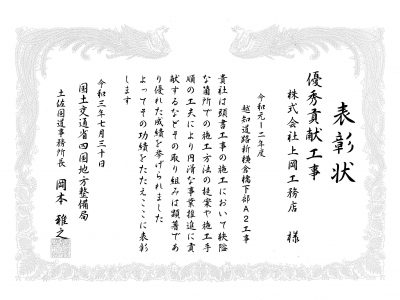 表彰状
優秀貢献工事
株式会社上岡工務店 様
令和元ー二年度
越知道路新横倉橋下部A2工事
貴社は頭書工事の施工において狭隘
な箇所での施工方法の提案や施工手
順の工夫により円滑な事業推進に貢
献するなどその取り組みは顕著であ
り優れた成績を挙げられました
よってその功績をたたえここに表彰
します
令和三年七月三十日
国土交通省四国地方整備局
土佐国道事務所長 岡本 雅之